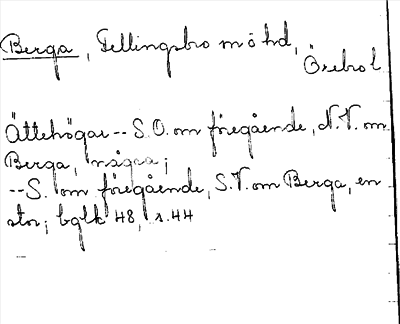 Berga, Fellingsbro sn o hd,
Örebro l
Ättehögar -- S.O. om föregående, N.V. om
Berga, några;
-- S. om föregående, S.V. om Berga, en
stor; bglk 48, s. 44